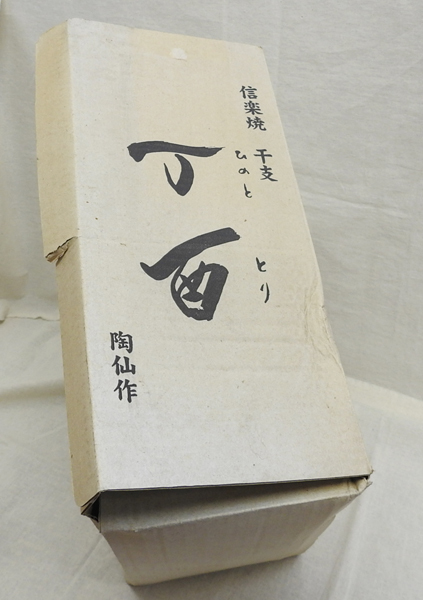 信楽焼 干支
ひのと とり
丁酉
陶仙作